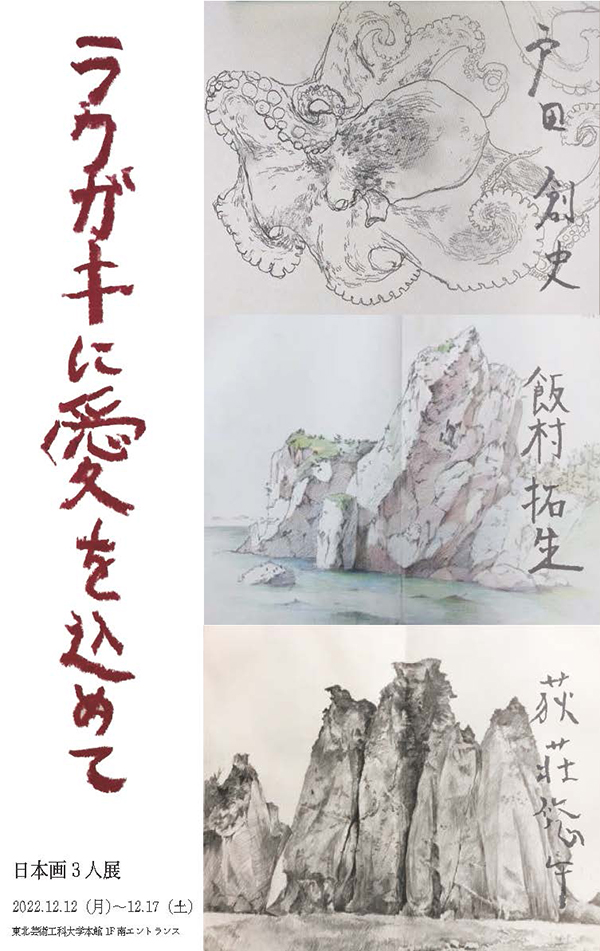 ラクガキに愛を込めて
戸田 創史
飯村 拓生
荻荘 悠午
日本画3人展
2022.12.12（月）～12.17（土）
東北芸術工科大学本館 1F 南エントランス